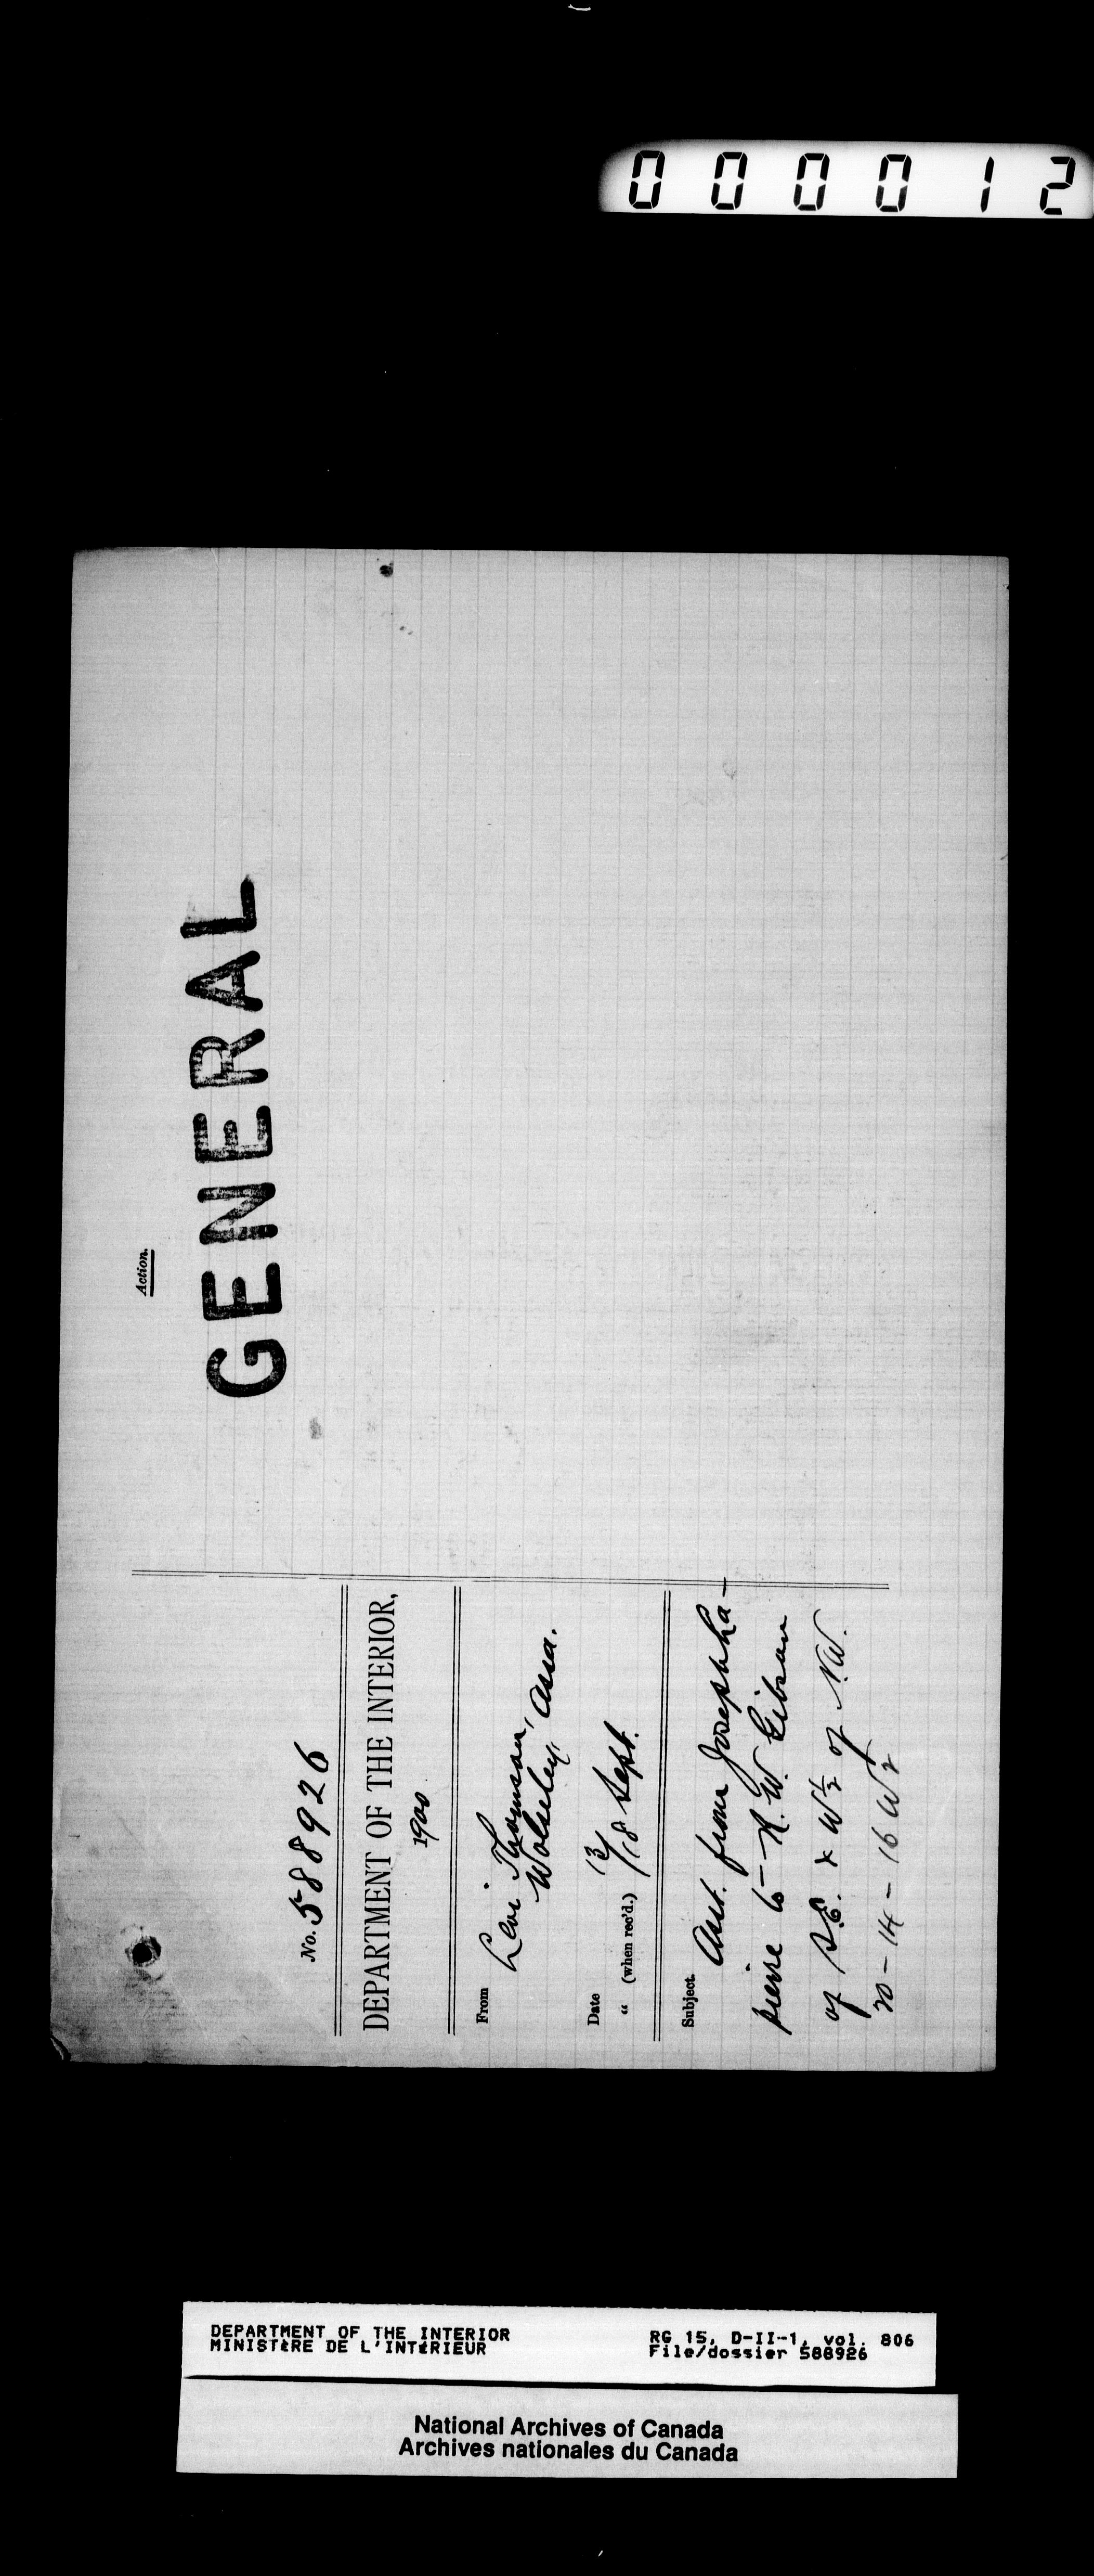 000012
Action.
GENERAL
No. 588926
DEPARTMENT OF THE INTERIOR,
1900
From Levi Thomson,
Wolseley, Assa.
Date 13/
" (when rec'd.) /18 Sept.
Subject. Asst. from Joseph La-
pierre to R. W. Gibson
of S.E. & W½ of N.W.
20-14-16 W2
DEPARTMENT OF THE INTERIOR
MINISTÈRE DE L'INTÉRIEUR
RG 15, D-II-1, vol. 806
File/dossier 588926
National Archives of Canada
Archives nationales du Canada